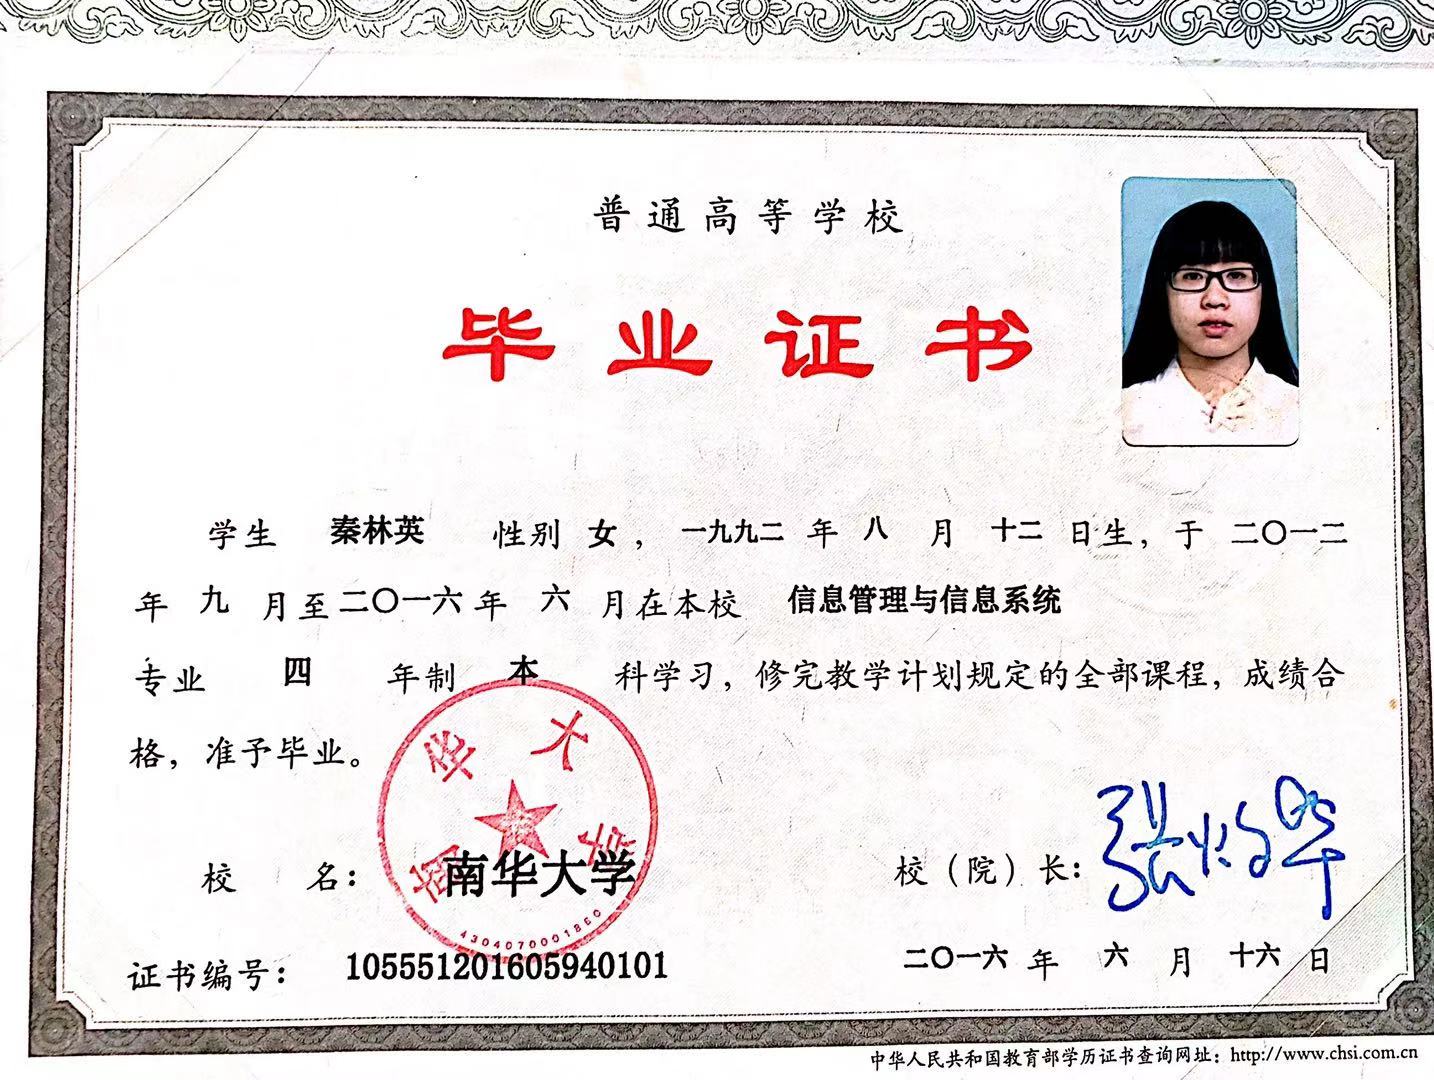 普通高等学校
毕业证书
学生 秦林英 性别 女，一九九二 年 八 月 十二 日生，于 二〇一二
年 九 月至 二〇一六 年 六 月在本校 信息管理与信息系统
专业 四 年制 本 科学习，修完教学计划规定的全部课程，成绩合
格，准予毕业。
南华大学
4304070001860
校 名：南华大学 校（院）长：
证书编号：105551201605940101 二〇一六 年 六 月 十六 日
中华人民共和国教育部学历证书查询网址：http://www.chsi.com.cn